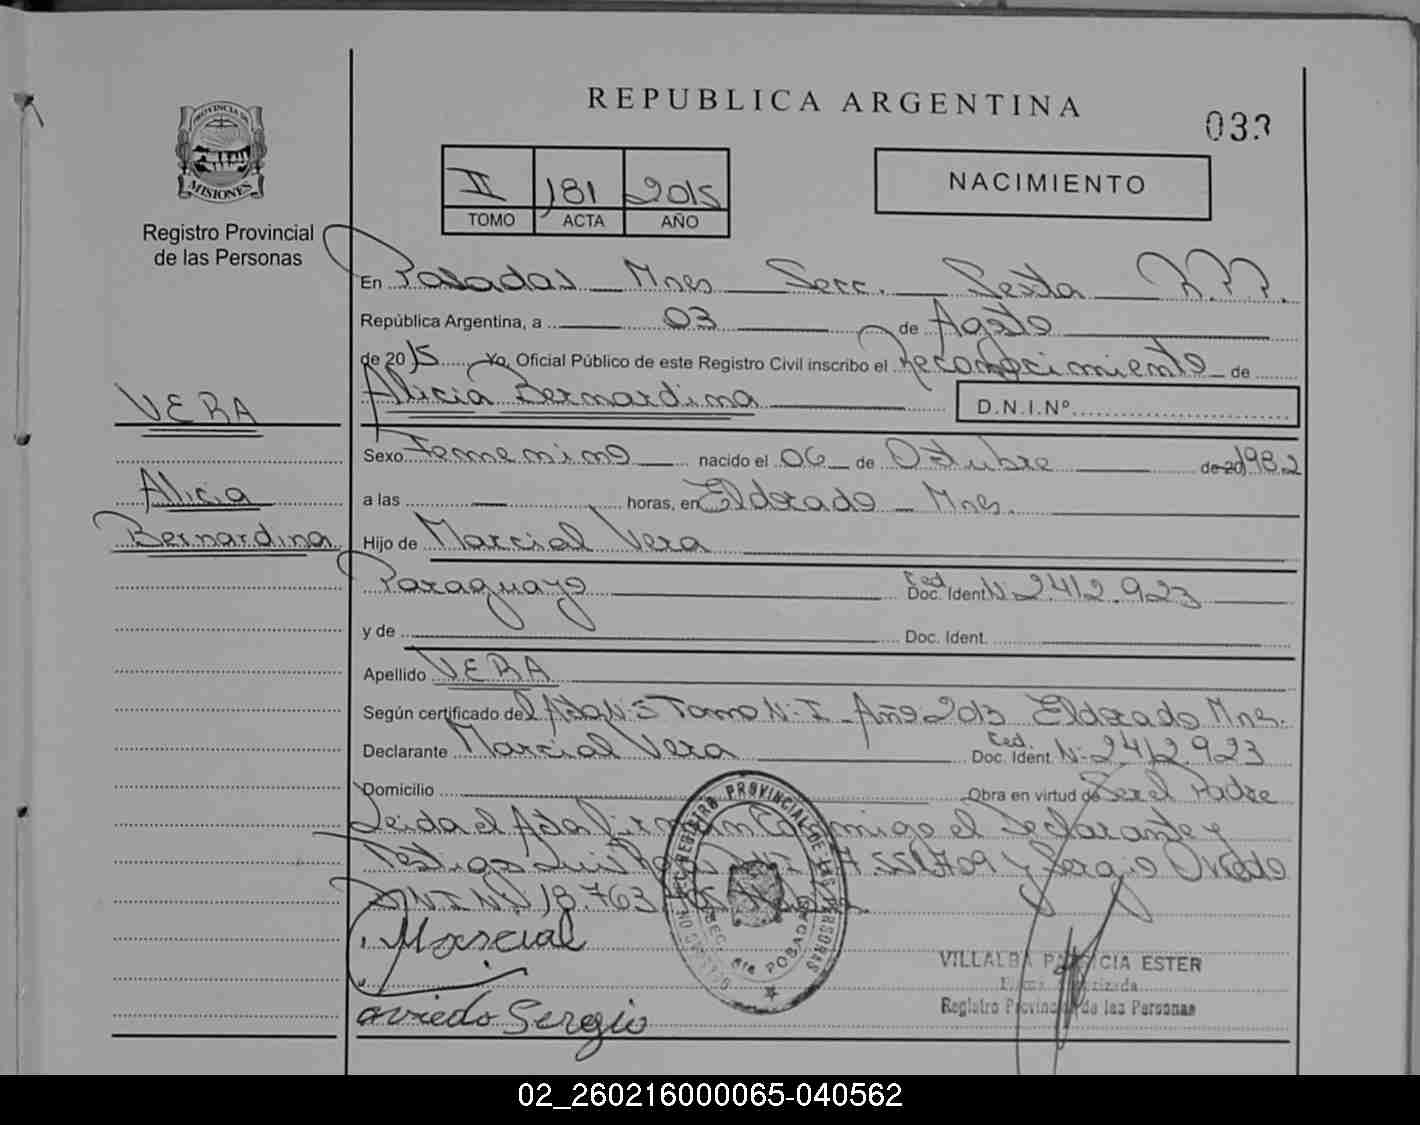 REPUBLICA ARGENTINA
033
PROVINCIA DE
MISIONES
Registro Provincial
de las Personas
II 181 2015
TOMO ACTA AÑO
NACIMIENTO
En Posadas Mnes Secc. Sexta R.P.P.
República Argentina, a 03 de Agosto
de 2015 Yo, Oficial Público de este Registro Civil inscribo el Reconocimiento de
Alicia Bernardina D.N.I.Nº
VERA
Alicia
Bernardina
Sexo Femenino nacido el 06 de Octubre de 20 1982
a las horas, en Eldorado - Mnes.
Hijo de Marcial Vera
Paraguayo Ced. Doc. Ident. N 2.412.923
y de Doc. Ident.
Apellido VERA
Según certificado del Acta N: 5 Tomo N: I Año 2013 Eldorado Mnes.
Declarante Marcial Vera Ced. Doc. Ident. N: 2.412.923
Domicilio Obra en virtud de Ser el Padre
Leida el Acta firman conmigo el Declarante y
Testigos Luis 7.551.709 y Sergio Oviedo
DNI Nº 18.763
Marcial
oviedo Sergio
REGISTRO PROVINCIAL DE LAS PERSONAS
SEC. 6ta POSADAS
VILLALBA PATRICIA ESTER
Firma Autorizada
Registro Provincial de las Personas
02_260216000065-040562